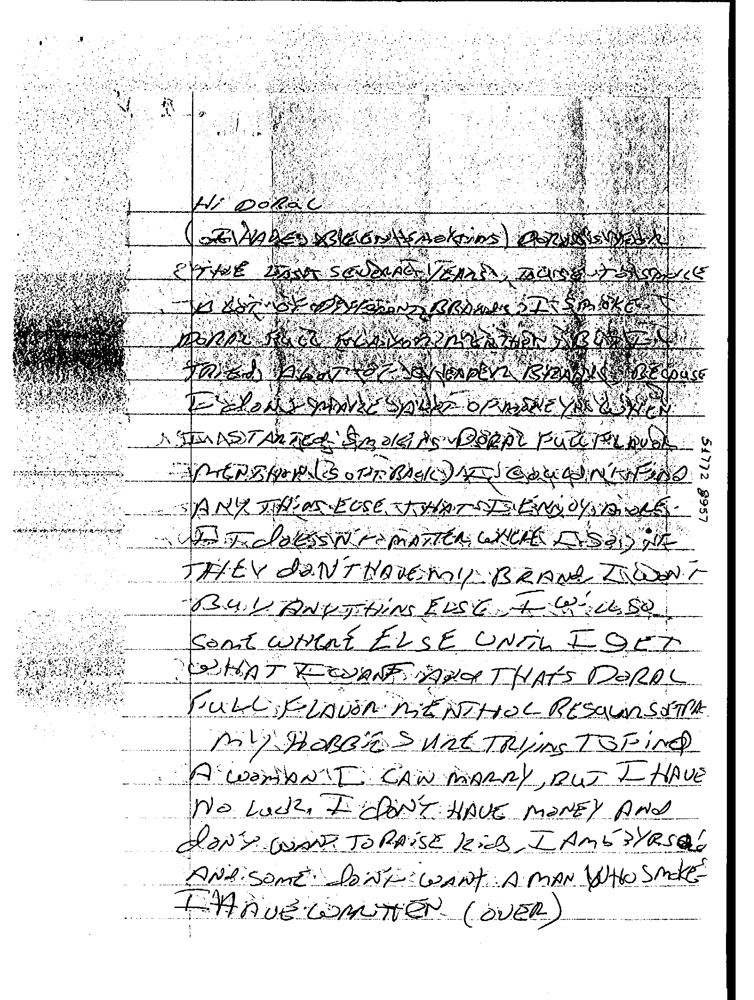 Hi DORAL
THE LAST SEVERAL YEARS,
A LOT OF DIFFERENT BRANDS, I SMOKE
DORAL FULL FLAVOR MENTHOL, BUT I
TRIED A LOT OF BRANDS, BECAUSE
I don't HAVE A LOT OF MONEY WHEN
I STARTED SMOKING DORAL FULL FLAVOR
MENTHOL (SOFT PACK) I FIND
ANY THING ELSE THAT I ENJOY MORE.
IT doESN'T MATTER WHERE I GO, IF
THEY dON'T HAVE MY BRAND I WON'T
BUY ANYTHING ELSE I WiLL GO
SOME WHERE ELSE UNTIL I GET
WHAT I WANT AND THATS DORAL
FULL FLAVOR MENTHOL
MY HOBBIES ARE TRYING TO FIND
A WOMAN I CAN MARRY, BUT I HAVE
NO LUCK. I dON'T HAVE MONEY AND
dON'T WANT TO RAISE KIDS, I AM 53YRS
AND SOME dON'T WANT A MAN WHO SMOKE
I HAVE WRITTEN (OVER)
51772 8957